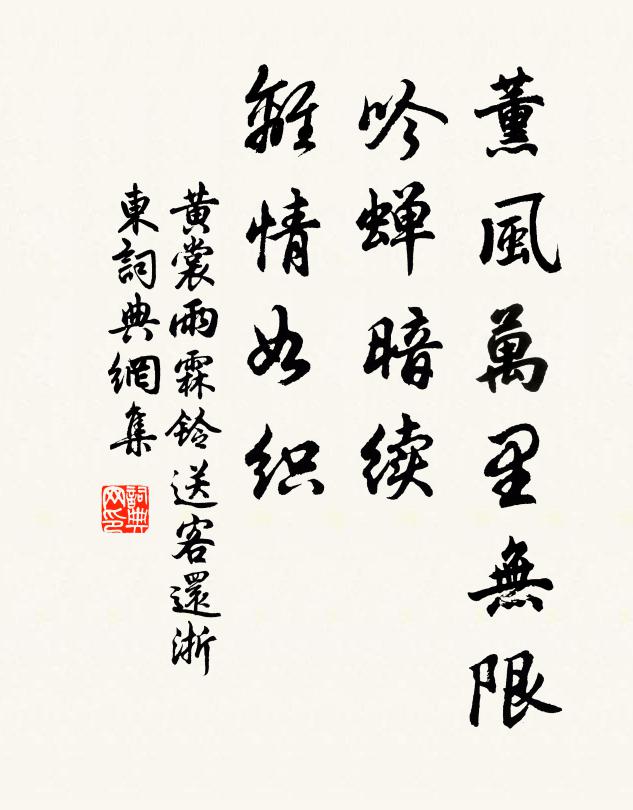 薰風萬里無限
吟蝉暗续
離情如织
黄裳雨霖鈴送客還浙
東詞典網集
詞典
网印